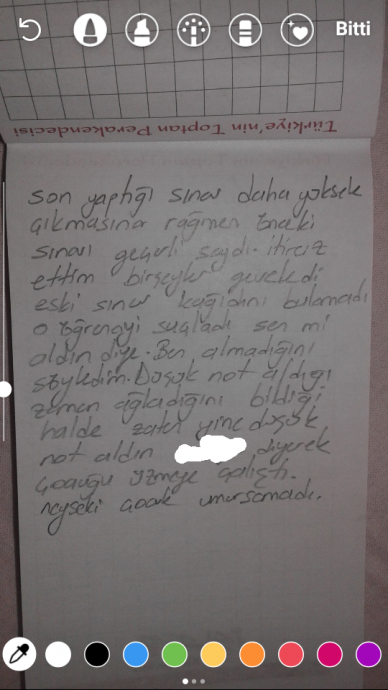 Bitti
Türkiye'nin Toptan Perakendecisi
son yaptığı sınav daha yüksek
çıkmasına rağmen önceki
sınavı geçerli saydı. itiraz
ettim birşeyler geveledi
eski sınav kağıdını bulamadı
o öğrenciyi suçladı sen mi
aldın diye. Ben almadığını
söyledim. Düşük not aldığı
zaman ağladığını bildiği
halde zaten yine düşük
not aldın diyerek
çocuğu üzmeye çalıştı.
neyseki çocuk umursamadı.